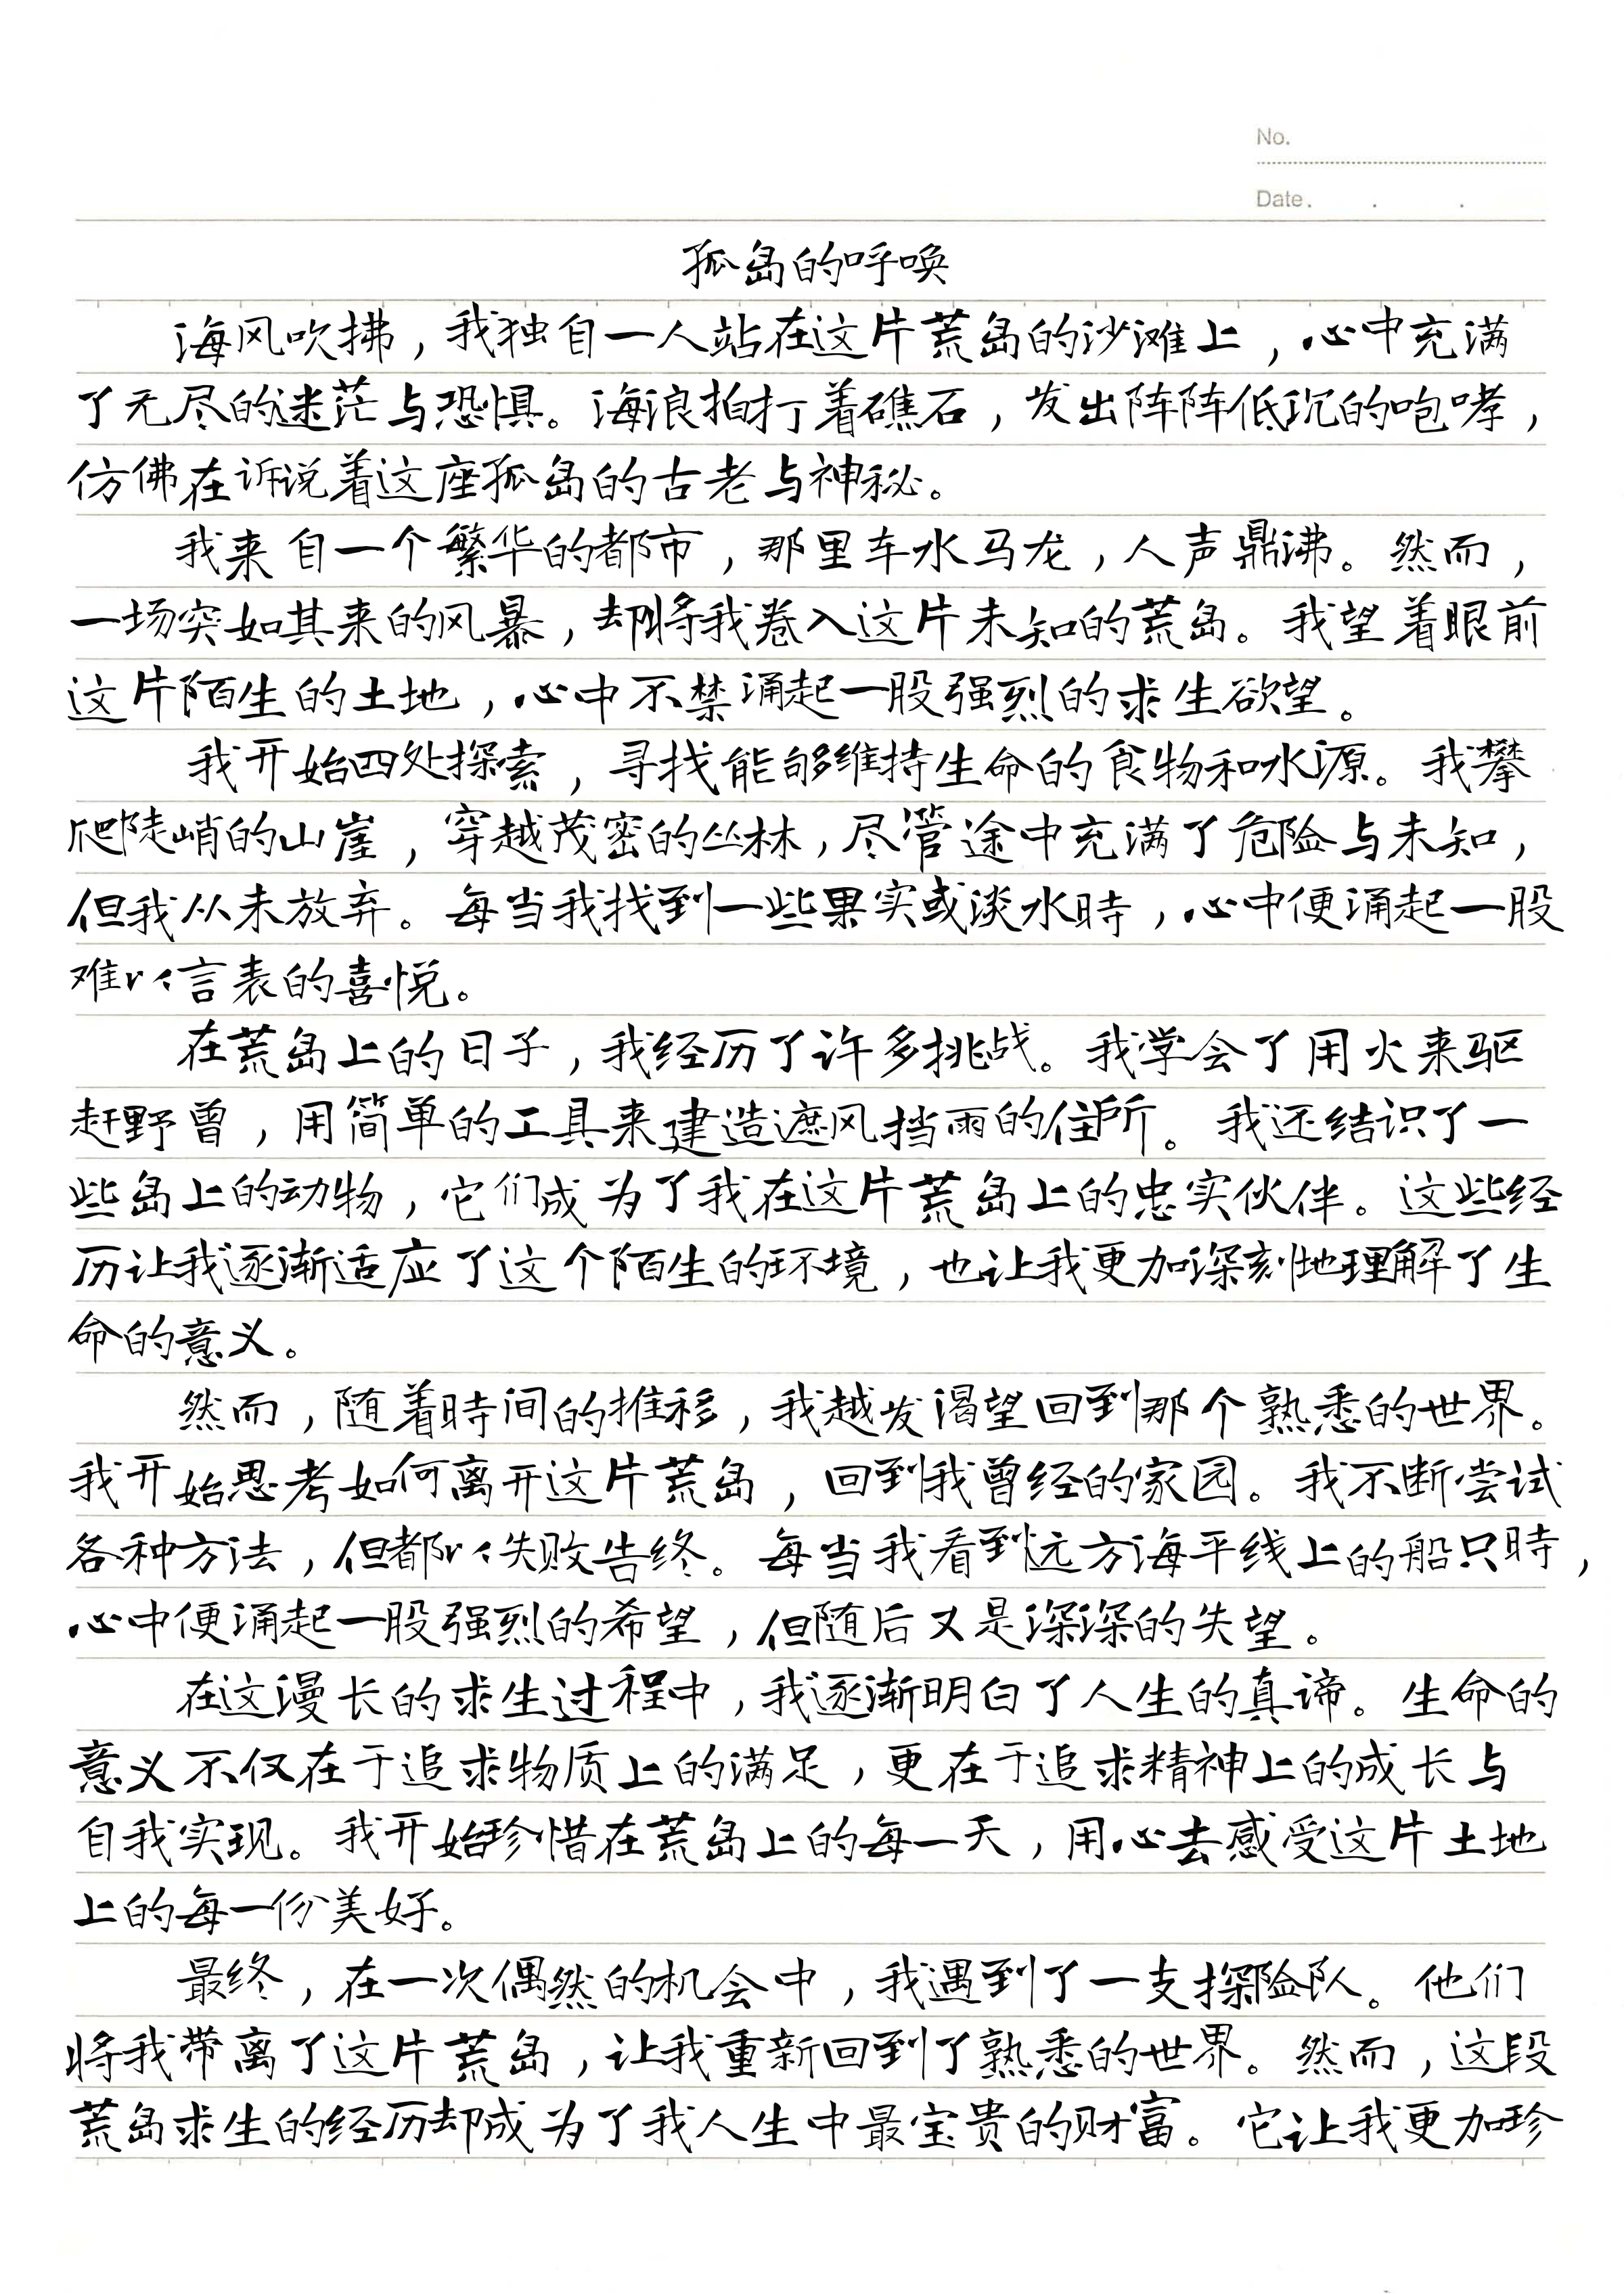 No.
Date. . .
孤岛的呼唤
海风吹拂，我独自一人站在这片荒岛的沙滩上，心中充满
了无尽的迷茫与恐惧。海浪拍打着礁石，发出阵阵低沉的咆哮，
仿佛在诉说着这座孤岛的古老与神秘。
我来自一个繁华的都市，那里车水马龙，人声鼎沸。然而，
一场突如其来的风暴，却将我卷入这片未知的荒岛。我望着眼前
这片陌生的土地，心中不禁涌起一股强烈的求生欲望。
我开始四处探索，寻找能够维持生命的食物和水源。我攀
爬陡峭的山崖，穿越茂密的丛林，尽管途中充满了危险与未知，
但我从未放弃。每当我找到一些果实或淡水時，心中便涌起一股
难以言表的喜悦。
在荒岛上的日子，我经历了许多挑战。我学会了用火来驱
赶野兽，用简单的工具来建造遮风挡雨的住所。我还结识了一
些岛上的动物，它们成为了我在这片荒岛上的忠实伙伴。这些经
历让我逐渐适应了这个陌生的环境，也让我更加深刻地理解了生
命的意义。
然而，随着時间的推移，我越发渴望回到那个熟悉的世界。
我开始思考如何离开这片荒岛，回到我曾经的家园。我不断尝试
各种方法，但都以失败告终。每当我看到远方海平线上的船只時，
心中便涌起一股强烈的希望，但随后又是深深的失望。
在这漫长的求生过程中，我逐渐明白了人生的真谛。生命的
意义不仅在于追求物质上的满足，更在于追求精神上的成长与
自我实现。我开始珍惜在荒岛上的每一天，用心去感受这片土地
上的每一份美好。
最终，在一次偶然的机会中，我遇到了一支探险队。他们
将我带离了这片荒岛，让我重新回到了熟悉的世界。然而，这段
荒岛求生的经历却成为了我人生中最宝贵的财富。它让我更加珍